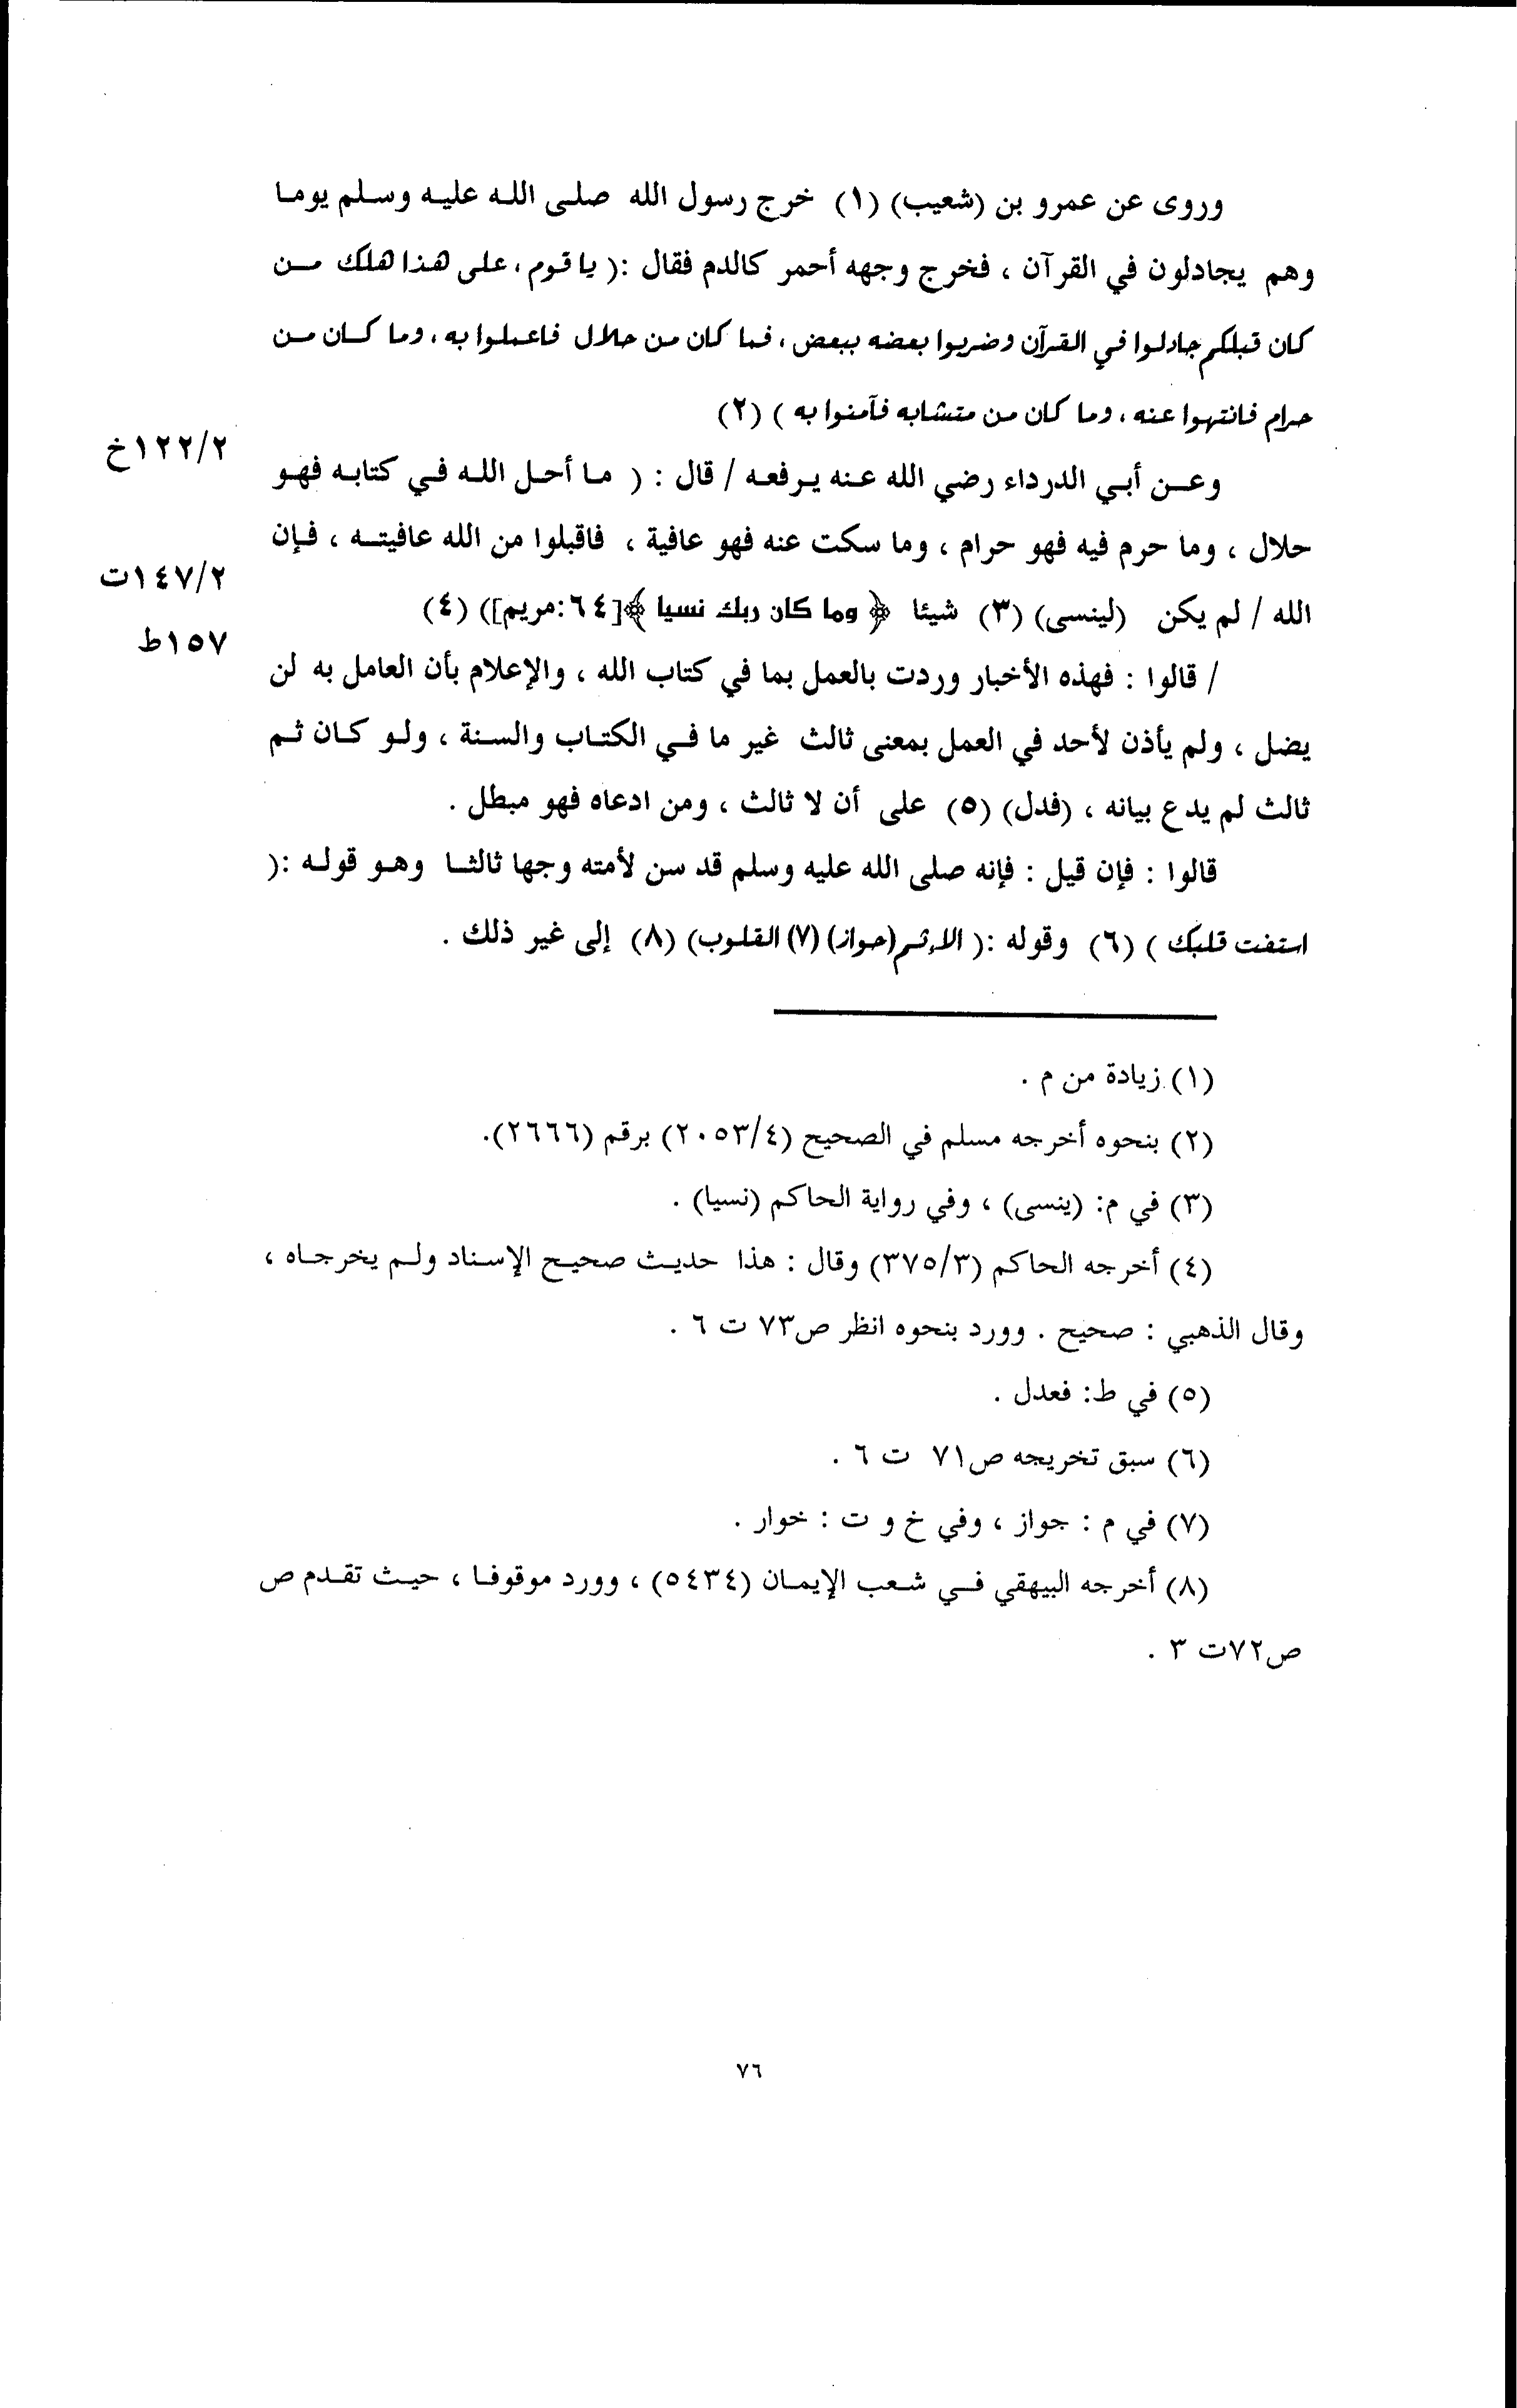 وروى عن عمرو بن (شعيب) (١) خرج رسول الله صلى الله عليه وسلم يوما
وهم يجادلون في القرآن ، فخرج وجهه أحمر كالدم فقال :( يا قوم ، على هذا هلك من
كان قبلكم جادلوا في القرآن وضربوا بعضه ببعض ، فما كان من حلال فاعملوا به ، وما كان من
حرام فانتهوا عنه ، وما كان من متشابه فآمنوا به ) (٢)
١٢٢/٢خ
وعن أبي الدرداء رضي الله عنه يرفعه / قال : ( ما أحل الله في كتابه فهو
حلال ، وما حرم فيه فهو حرام ، وما سكت عنه فهو عافية ، فاقبلوا من الله عافيته ، فإن
١٤٧/٢ت
الله / لم يكن (لينسى) (٣) شيئا ﴿ وما كان ربك نسيا ﴾[٦٤:مريم]) (٤)
١٥٧ط
/ قالوا : فهذه الأخبار وردت بالعمل بما في كتاب الله ، والإعلام بأن العامل به لن
يضل ، ولم يأذن لأحد في العمل بمعنى ثالث غير ما في الكتاب والسنة ، ولو كان ثم
ثالث لم يدع بيانه ، (فدل) (٥) على أن لا ثالث ، ومن ادعاه فهو مبطل .
قالوا : فإن قيل : فإنه صلى الله عليه وسلم قد سن لأمته وجها ثالثا وهو قوله :(
استفت قلبك ) (٦) وقوله :( الإثم (حواز) (٧) القلوب) (٨) إلى غير ذلك .
(١) زيادة من م .
(٢) بنحوه أخرجه مسلم في الصحيح (٢٠٥٣/٤) برقم (٢٦٦٦).
(٣) في م: (ينسى) ، وفي رواية الحاكم (نسيا) .
(٤) أخرجه الحاكم (٣٧٥/٣) وقال : هذا حديث صحيح الإسناد ولم يخرجاه ،
وقال الذهبي : صحيح . وورد بنحوه انظر ص٧٣ ت ٦ .
(٥) في ط: فعدل .
(٦) سبق تخريجه ص٧١ ت ٦ .
(٧) في م : جواز ، وفي خ و ت : خوار .
(٨) أخرجه البيهقي في شعب الإيمان (٥٤٣٤) ، وورد موقوفا ، حيث تقدم ص
ص٧٢ت ٣ .
٧٦